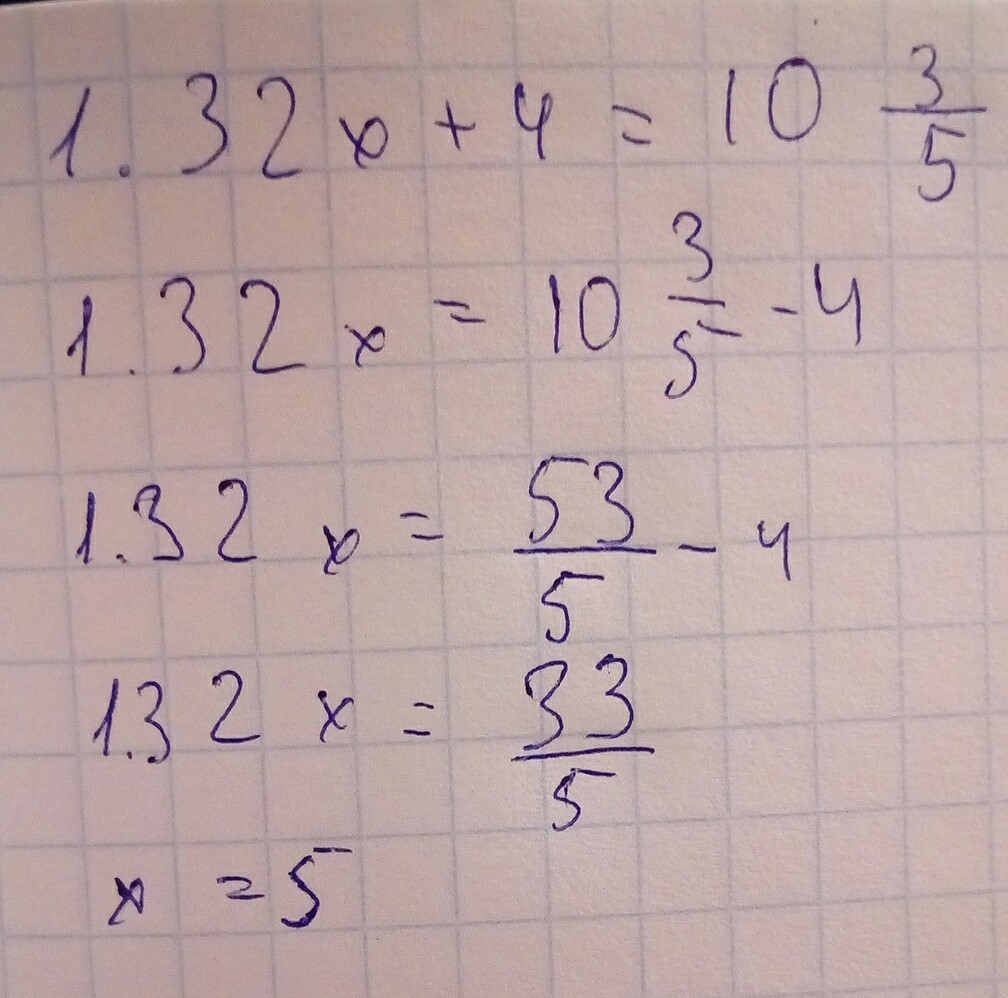 1.32x + 4 = 10 3/5
1.32x = 10 3/5 - 4
1.32x = 53/5 - 4
1.32x = 33/5
x = 5